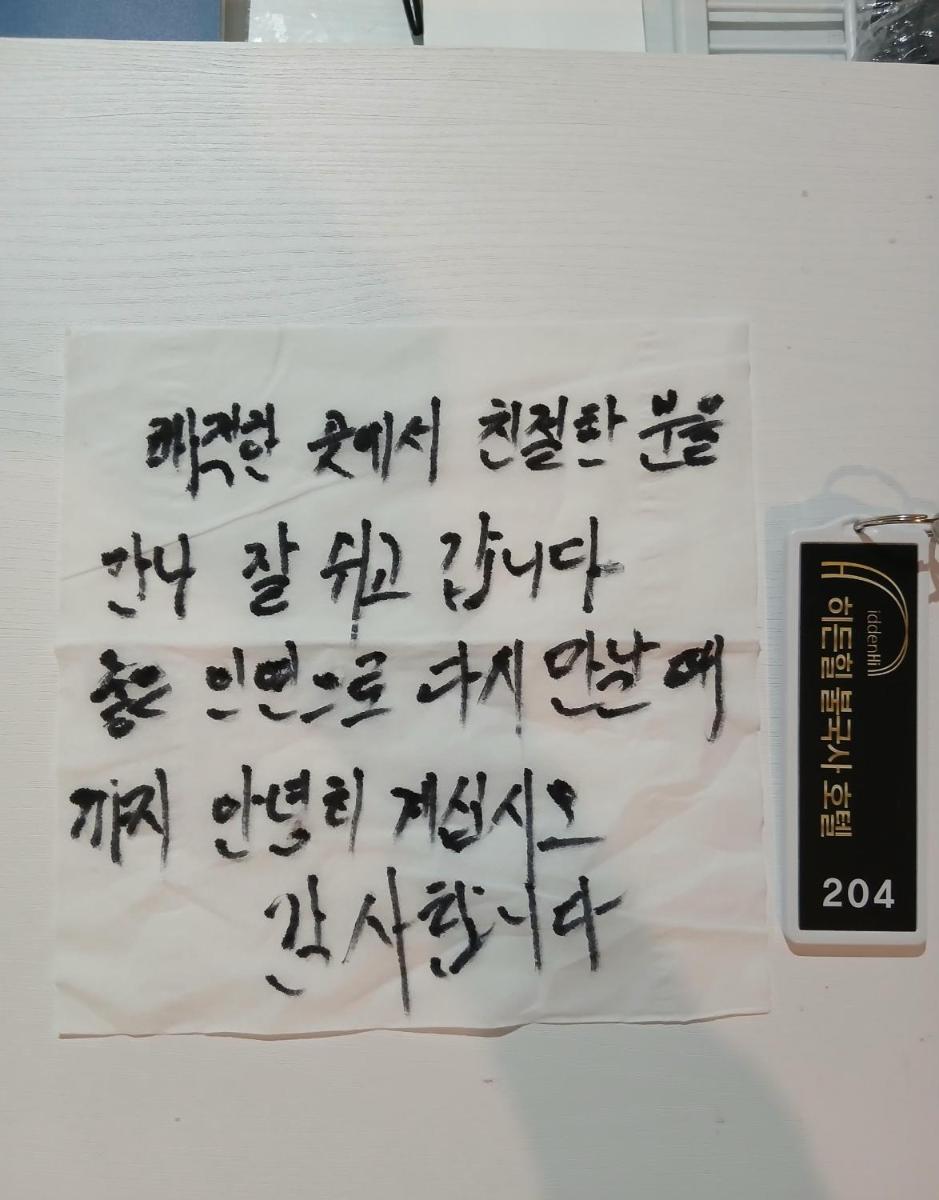 쾌적한 곳에서 친절한 분을
만나 잘 쉬고 갑니다
좋은 인연으로 다시 만날 때
까지 안녕히 계십시오
감사합니다
iddenHill
히든힐 불국사 호텔
204